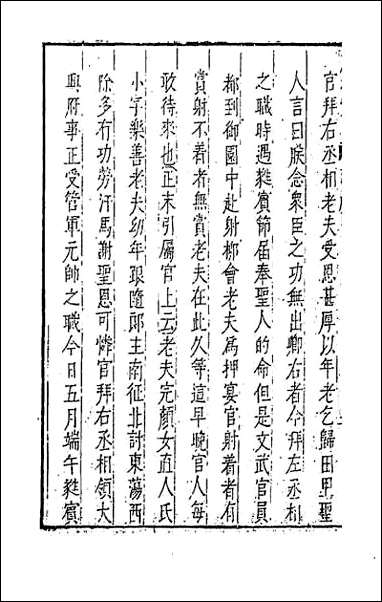 官拜右丞相老夫受恩甚厚以年老乞歸田里聖
人言曰朕念衆臣之功無出卿右者今拜左丞相
之職時遇蕤賓節届奉聖人的命但是文武官員
都到御園中赴射柳會老夫為押宴官射着者有
賞射不着者無賞老夫在此久等這早晚官人每
敢待來也正末引屬官上云老夫完顔女直人氏
小字樂善老夫幼年跟隨郎主南征北討東蕩西
除多有功勞汗馬謝聖恩可憐官拜右丞相領大
興府事正受管軍元帥之職今日五月端午蕤賓